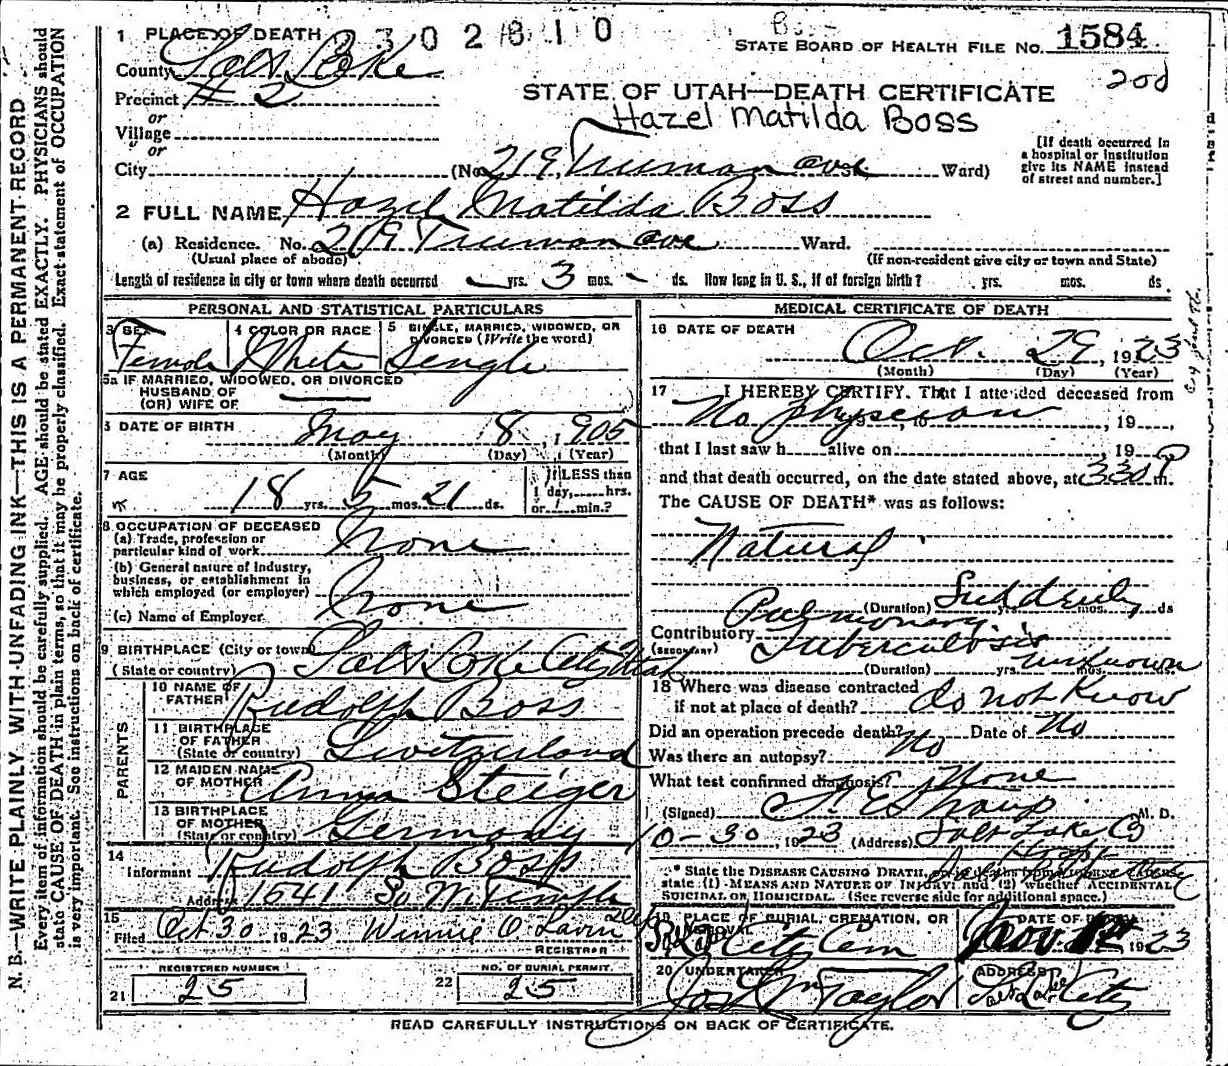 N. B.—WRITE PLAINLY, WITH UNFADING INK—THIS IS A PERMANENT RECORD
Every item of information should be carefully supplied. AGE should be stated EXACTLY. PHYSICIANS should
state CAUSE OF DEATH in plain terms, so that it may be properly classified. Exact statement of OCCUPATION
is very important. See instructions on back of certificate.
1 PLACE OF DEATH 302810 STATE BOARD OF HEALTH FILE NO. 1584
County Salt Lake 200
Precinct # 2 STATE OF UTAH—DEATH CERTIFICATE
or Hazel Matilda Boss
Village
or
City (No. 219 Truman ave St. Ward) [If death occurred in a hospital or institution give its NAME instead of street and number.]
2 FULL NAME Hazel Matilda Boss
(a) Residence. No. 219 Truman ave Ward.
(Usual place of abode) (If non-resident give city or town and State)
Length of residence in city or town where death occurred — yrs. 3 mos. — ds. How long in U. S., if of foreign birth? yrs. mos. ds.
PERSONAL AND STATISTICAL PARTICULARS
3 SEX 4 COLOR OR RACE 5 SINGLE, MARRIED, WIDOWED, OR DIVORCED (Write the word)
Female White Single
5a IF MARRIED, WIDOWED, OR DIVORCED
HUSBAND OF
(OR) WIFE OF
6 DATE OF BIRTH May 8, 1905
(Month) (Day) (Year)
7 AGE 18 yrs. 5 mos. 21 ds. If LESS than 1 day, hrs. or min.?
8 OCCUPATION OF DECEASED
(a) Trade, profession or particular kind of work None
(b) General nature of industry, business, or establishment in which employed (or employer)
None
(c) Name of Employer
9 BIRTHPLACE (City or town) Salt Lake City Utah
(State or country)
PARENTS
10 NAME OF FATHER Rudolph Boss
11 BIRTHPLACE OF FATHER (State or country) Switzerland
12 MAIDEN NAME OF MOTHER Anna Steiger
13 BIRTHPLACE OF MOTHER (State or country) Germany
14 Informant Rudolph Boss
Address 1541 So. W. Temple
15 Filed Oct 30 1923 Winnie O Lavin
REGISTRAR
REGISTERED NUMBER
21 25
NO. OF BURIAL PERMIT
22 25
MEDICAL CERTIFICATE OF DEATH
16 DATE OF DEATH
Oct. 29, 1923
(Month) (Day) (Year)
17 I HEREBY CERTIFY, That I attended deceased from
No physician, 19
that I last saw h alive on 19
and that death occurred, on the date stated above, at 330 P m.
The CAUSE OF DEATH* was as follows:
Natural
(Duration) Suddenly yrs. mos. ds
Contributory (SECONDARY) Pulmonary Tuberculosis
(Duration) yrs. mos. ds. unknown
18 Where was disease contracted if not at place of death? do not know
Did an operation precede death? No Date of No
Was there an autopsy? No
What test confirmed diagnosis? None
(Signed) M. D.
10-30, 1923 (Address) Salt Lake Co
* State the DISEASE CAUSING DEATH,
state (1) MEANS AND NATURE OF INJURY; and (2) whether ACCIDENTAL
SUICIDAL OR HOMICIDAL. (See reverse side for additional space.)
19 PLACE OF BURIAL, CREMATION, OR REMOVAL DATE OF BURIAL
S. L. City Cem Nov. 1st 1923
20 UNDERTAKER ADDRESS
Jos. Wm Taylor Salt Lake City
READ CAREFULLY INSTRUCTIONS ON BACK OF CERTIFICATE.